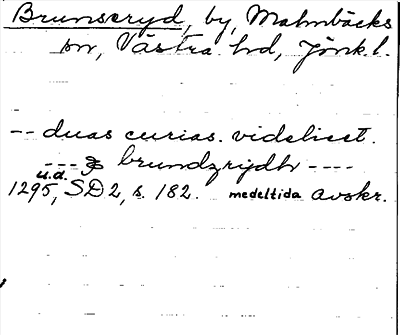 Brunseryd, by, Malmbäcks
sn, Västra hd, Jönk.l.
-- duas curias. videlicet.
--- brundzrijdh ----
u.d.
1295, SD2, s. 182. medeltida avskr.